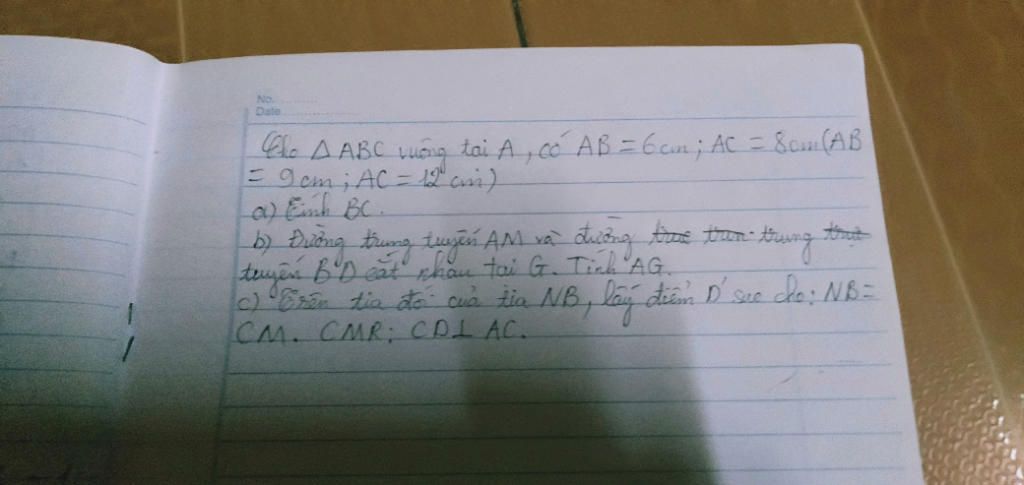 No.
Date
Cho △ABC vuông tại A, có AB = 6cm; AC = 8cm (AB
= 9cm; AC = 12cm)
a) Tính BC.
b) Đường trung tuyến AM và đường trung
tuyến BD cắt nhau tại G. Tính AG.
c) Trên tia đối của tia NB, lấy điểm D' sao cho: NB =
CM. CMR: CD⊥ AC.